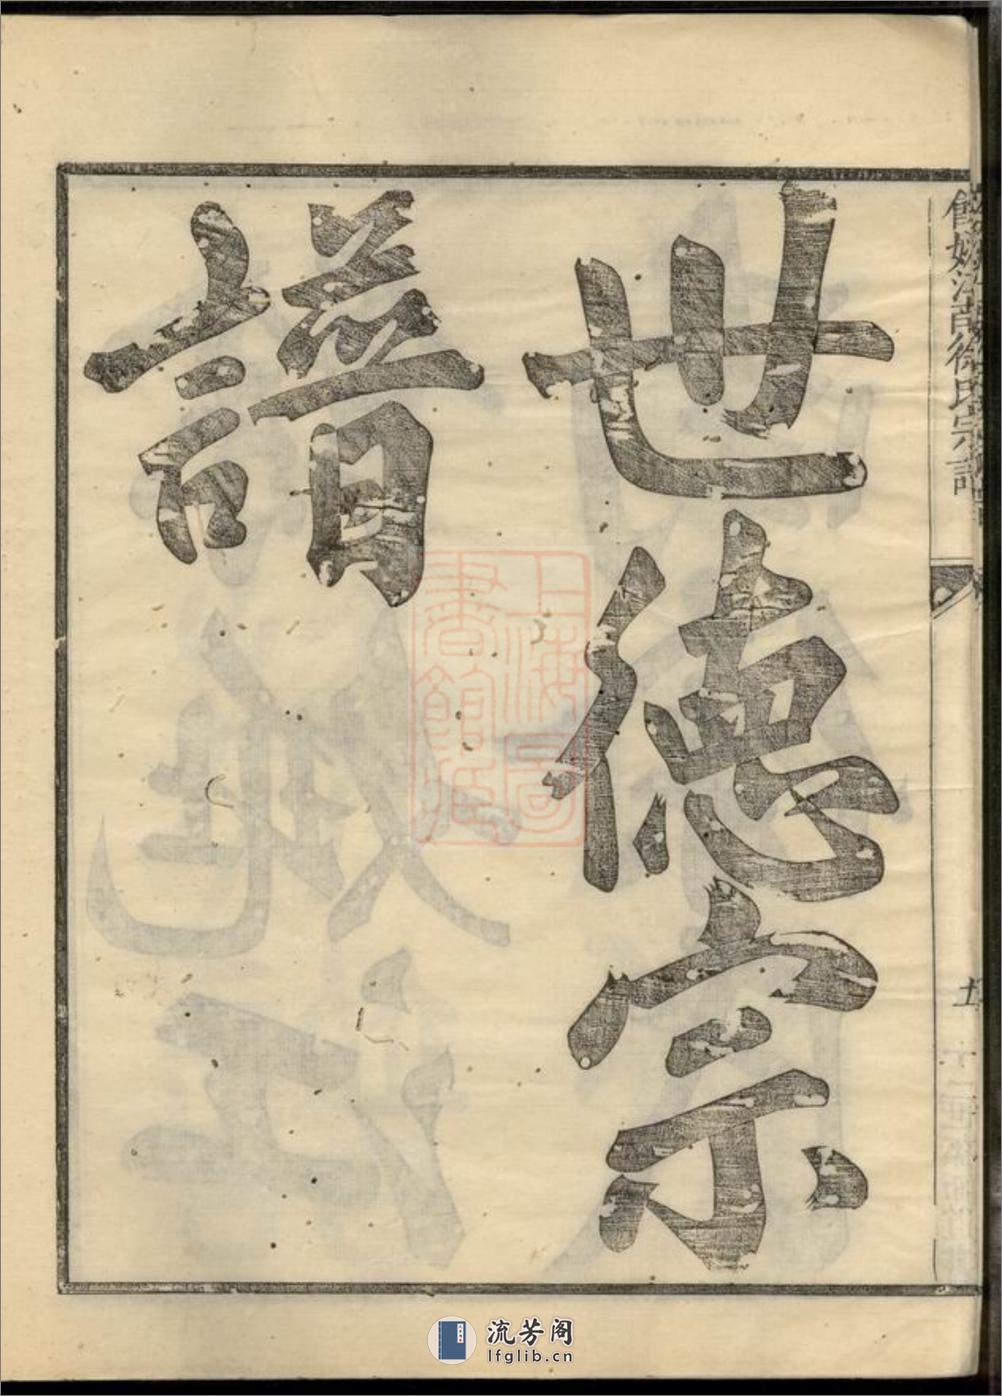 世德宗
譜
徐氏宗譜
上海圖
書館藏
流芳阁
lfglib.cn